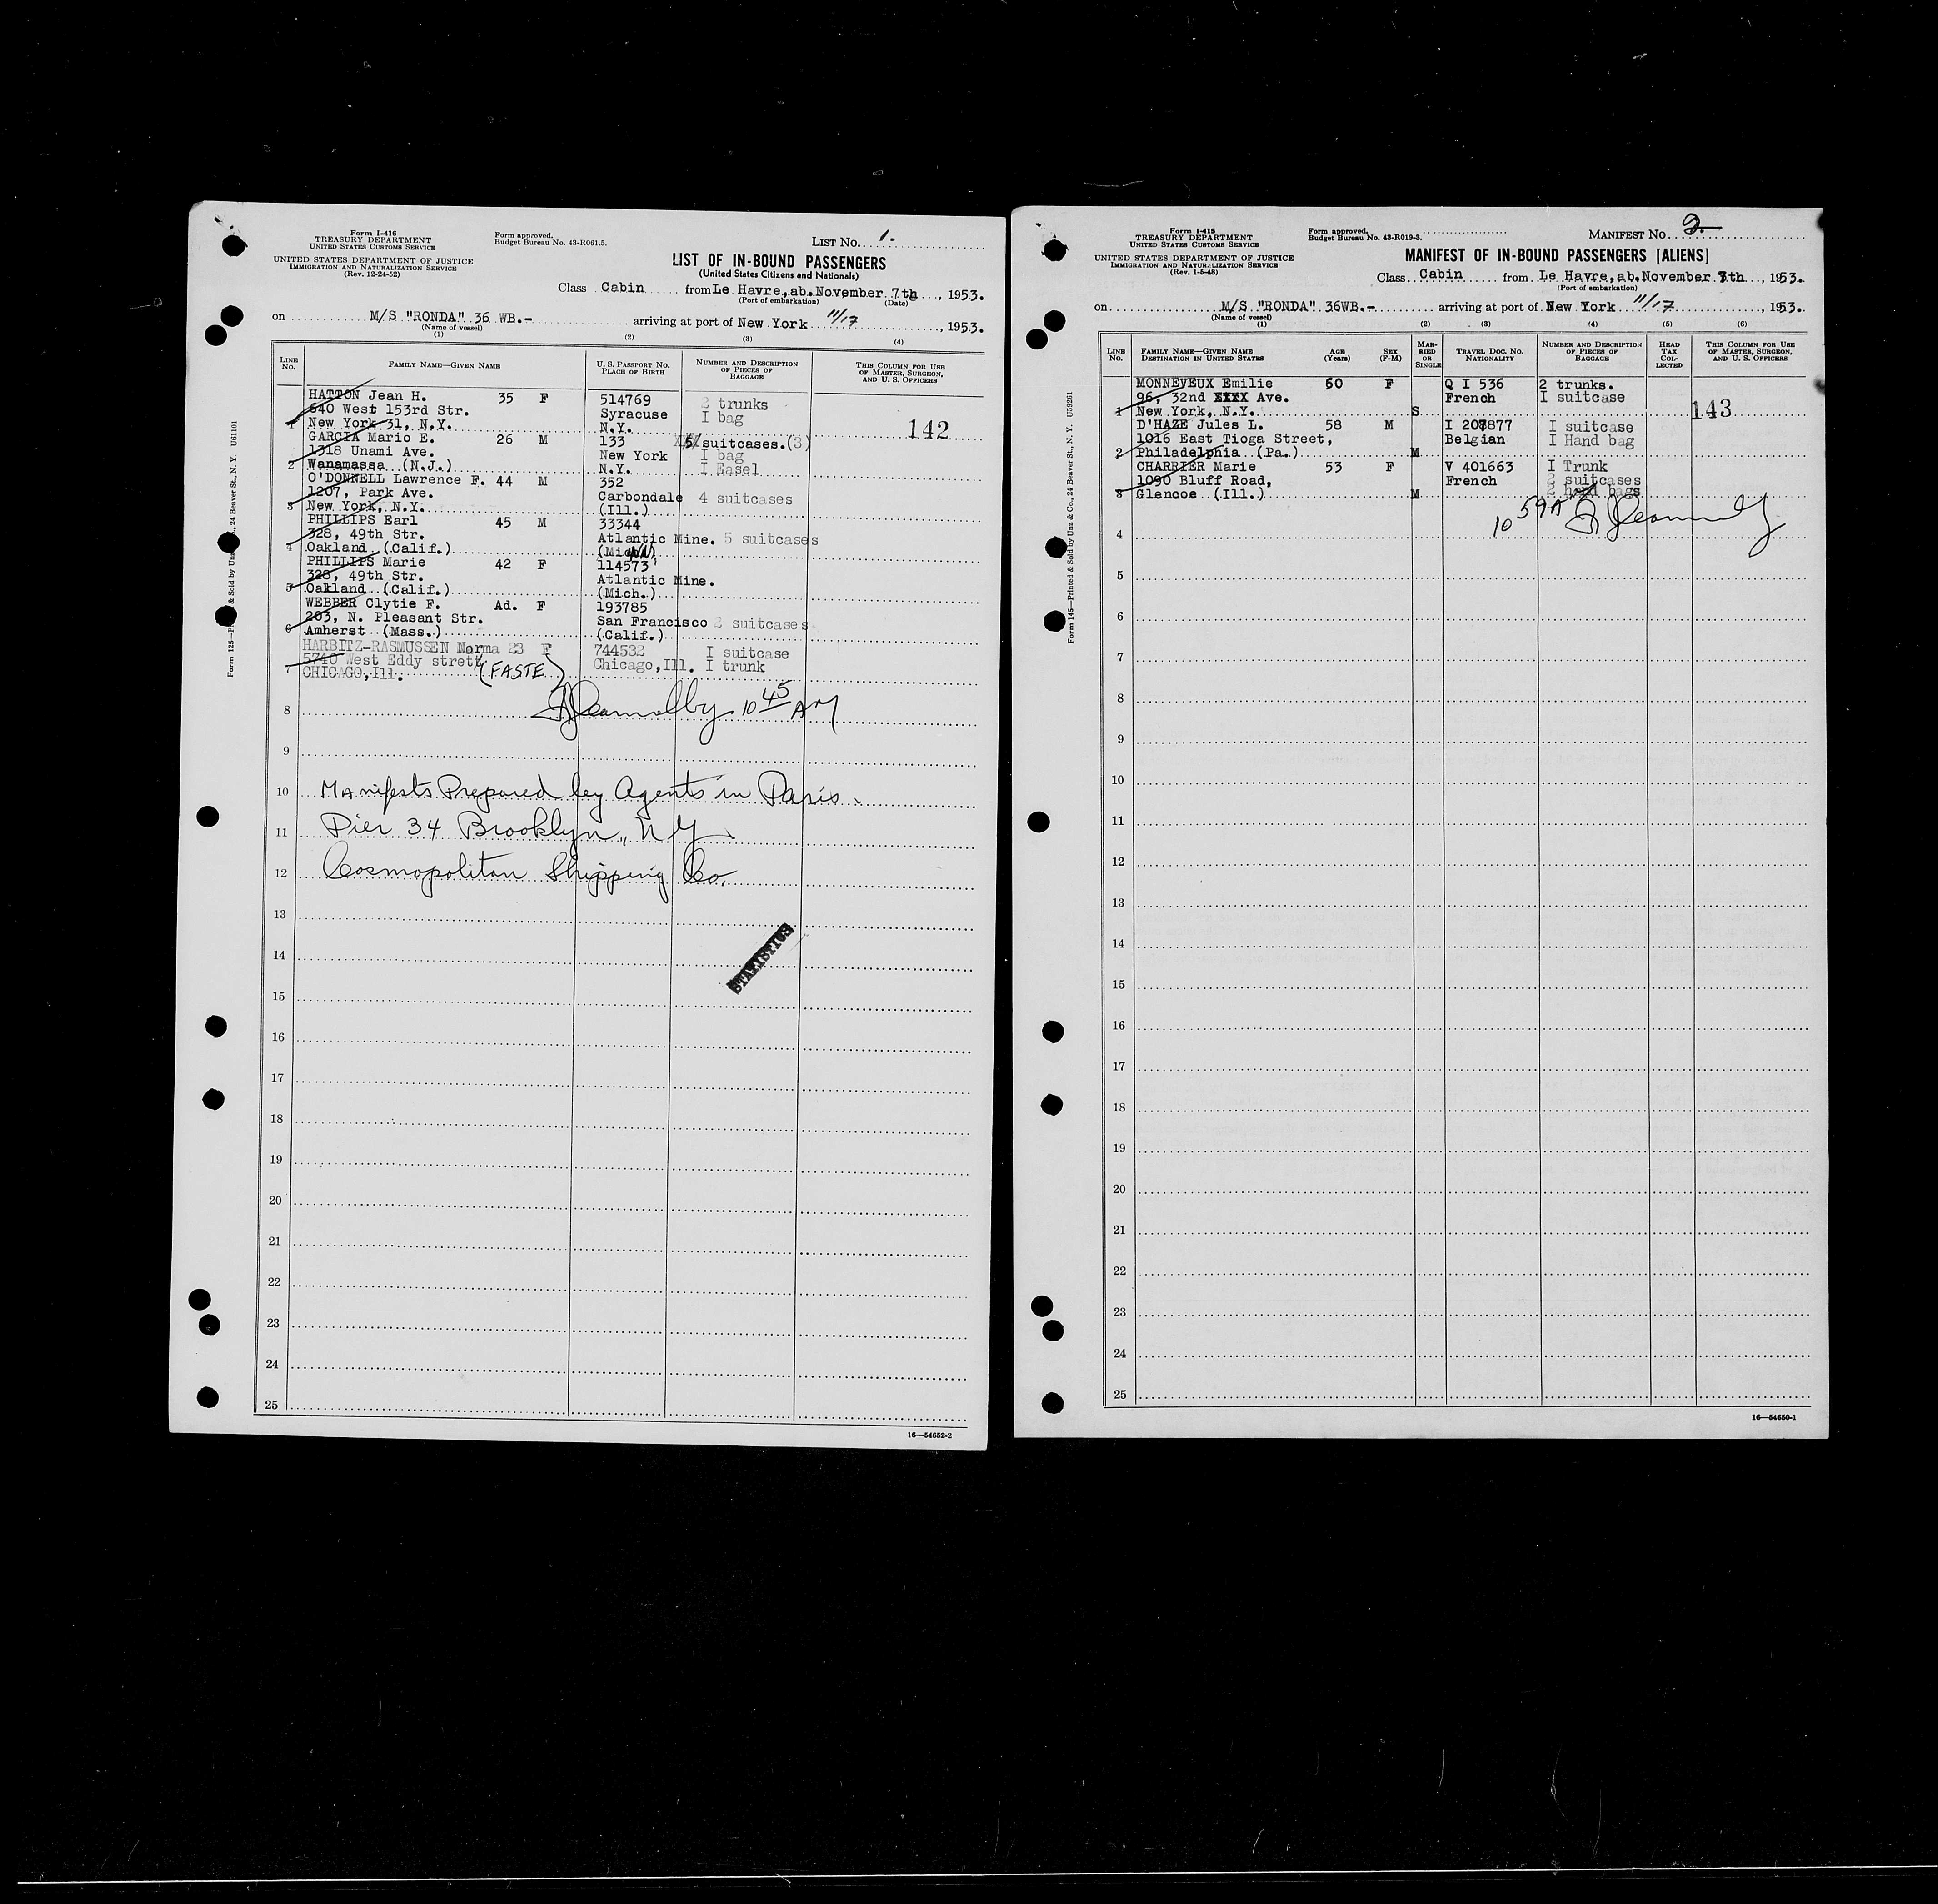 Form I-416
TREASURY DEPARTMENT
UNITED STATES CUSTOMS SERVICE
UNITED STATES DEPARTMENT OF JUSTICE
IMMIGRATION AND NATURALIZATION SERVICE
(Rev. 12-24-52)
Form approved.
Budget Bureau No. 43-R061.5.
LIST No. 1.
LIST OF IN-BOUND PASSENGERS
(United States Citizens and Nationals)
Class Cabin from Le Havre, ab. November 7th, 1953.
(Port of embarkation) (Date)
on M/S "RONDA" 36 WB.- arriving at port of New York 11/17, 1953.
(Name of vessel)
(1) (2) (3) (4)
LINE No. FAMILY NAME—GIVEN NAME U. S. PASSPORT NO. PLACE OF BIRTH NUMBER AND DESCRIPTION OF PIECES OF BAGGAGE THIS COLUMN FOR USE OF MASTER, SURGEON, AND U. S. OFFICERS
HATTON Jean H. 35 F 514769 2 trunks
640 West 153rd Str. Syracuse I bag
1 New York 31, N.Y. N.Y. 142
GARCIA Mario E. 26 M 133 suitcases.(3)
1318 Unami Ave. New York I bag
2 Wanamassa (N.J.) N.Y. I Easel
O'DONNELL Lawrence F. 44 M 352
1207, Park Ave. Carbondale 4 suitcases
3 New York, N.Y. (Ill.)
PHILLIPS Earl 45 M 33344
328, 49th Str. Atlantic Mine. 5 suitcases
4 Oakland (Calif.) (Mich.)
PHILLIPS Marie 42 F 114573
328, 49th Str. Atlantic Mine.
5 Oakland (Calif.) (Mich.)
WEBBER Clytie F. Ad. F 193785
203, N. Pleasant Str. San Francisco 2 suitcases
6 Amherst (Mass.) (Calif.)
HARBITZ-RASMUSSEN Norma 23 F 744532 I suitcase
5740 West Eddy strett (FASTE) Chicago, Ill. I trunk
7 CHICAGO, Ill.
8 10 45 AM
9
10 Manifests Prepared by Agents in Paris.
11 Pier 34 Brooklyn, N.Y.
12 Cosmopolitan Shipping Co.
13
STATISTICS
14
15
16
17
18
19
20
21
22
23
24
25
16—54652-2
& Sold by Unz & Co., 24 Beaver St., N. Y. U61101
Form I-415
TREASURY DEPARTMENT
UNITED STATES CUSTOMS SERVICE
UNITED STATES DEPARTMENT OF JUSTICE
IMMIGRATION AND NATURALIZATION SERVICE
(Rev. 1-5-48)
Form approved.
Budget Bureau No. 43-R019-3.
MANIFEST No. 2.
MANIFEST OF IN-BOUND PASSENGERS [ALIENS]
Class Cabin from Le Havre, ab. November 7th, 1953.
(Port of embarkation)
on M/S "RONDA" 36WB.- arriving at port of New York 11/17, 1953.
(Name of vessel)
(1) (2) (3) (4) (5) (6)
LINE No. FAMILY NAME—GIVEN NAME DESTINATION IN UNITED STATES AGE (Years) SEX (F-M) MARRIED OR SINGLE TRAVEL DOC. NO. NATIONALITY NUMBER AND DESCRIPTION OF PIECES OF BAGGAGE HEAD TAX COLLECTED THIS COLUMN FOR USE OF MASTER, SURGEON, AND U. S. OFFICERS
MONNEVEUX Emilie 60 F Q I 536 2 trunks.
96, 32nd XXXX Ave. French I suitcase
1 New York, N.Y. S 143
D'HAZE Jules L. 58 M I 207877 I suitcase
1016 East Tioga Street, Belgian I Hand bag
2 Philadelphia (Pa.) M
CHARRIER Marie 53 F V 401663 I Trunk
1090 Bluff Road, French 2 suitcases
3 Glencoe (Ill.) M 2 hand bags
10 59A
4
5
6
7
8
9
10
11
12
13
14
15
16
17
18
19
20
21
22
23
24
25
16—54650-1
Form 145—Printed & Sold by Unz & Co., 24 Beaver St., N. Y. U59261